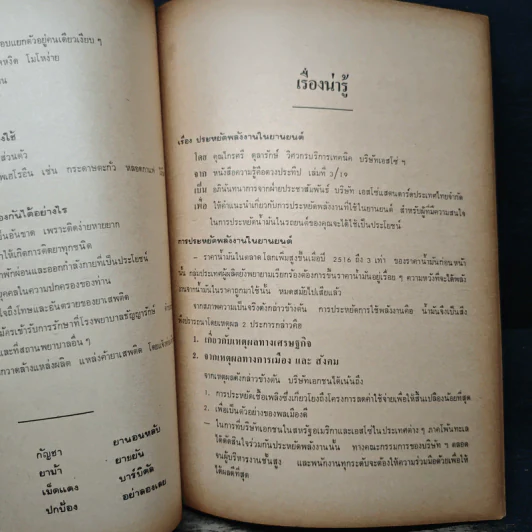 อบแยกตัวอยู่คนเดียวเงียบ ๆ
หงิด โมโหง่าย
ส่วนตัว
เฮโรอีน เช่น กระดาษตะกั่ว หลอดกาแฟ
องกันได้อย่างไร
เป็นอันขาด เพราะติดง่ายหายยาก
ให้เกิดการติดยาทุกชนิด
พักผ่อนและออกกำลังกายที่เป็นประโยชน์
บุคคลในความปกครองของท่าน
ถึงโทษและอันตรายของยาเสพติด
มัครเข้ารับการรักษาที่โรงพยาบาลธัญญารักษ์
และที่สถานพยาบาลอื่น ๆ
กวาดล้างแหล่งผลิต แหล่งค้ายาเสพติด โดยแจ้ง
กัญชา ยานอนหลับ
ยาม้า ยาขยัน
เม็ดแดง บาร์บิตัล
ปกป้อง อย่าลองเลย
เรื่องน่ารู้
เรื่อง ประหยัดพลังงานในยานยนต์
โดย คุณไกรศรี ตุลารักษ์ วิศวกรบริการเทคนิค บริษัทเอสโซ่ ฯ
จาก หนังสือความรู้คือดวงประทีป เล่มที่ 3/19
เป็น อภินันทนาการจากฝ่ายประชาสัมพันธ์ บริษัท เอสโซ่แสตนดาร์ดประเทศไทยจำกัด
เพื่อ ให้คำแนะนำเกี่ยวกับการประหยัดพลังงานที่ใช้ในยานยนต์ สำหรับผู้ที่มีความสนใจ
ในการประหยัดน้ำมันในรถยนต์ของคุณจะได้ใช้เป็นประโยชน์
การประหยัดพลังงานในยานยนต์
– ราคาน้ำมันในตลาดโลกเพิ่มสูงขึ้นเมื่อปี 2516 ถึง 3 เท่า ของราคาน้ำมันก่อนหน้า
นั้น กลุ่มประเทศผู้ผลิตยังพยายามเรียกร้องต้องการขึ้นราคาน้ำมันอยู่เรื่อย ๆ ความหวังที่จะได้พลัง
งานจากน้ำมันในราคาถูกมาใช้นั้น หมดสมัยไปเสียแล้ว
จากสภาพความเป็นจริงดังกล่าวข้างต้น การประหยัดการใช้พลังงานคือ น้ำมันจึงเป็นสิ่ง
ปรารถนาโดยเหตุผล 2 ประการกล่าวคือ
1. เกี่ยวกับเหตุผลทางเศรษฐกิจ
2. จากเหตุผลทางการเมือง และ สังคม
จากเหตุผลดังกล่าวข้างต้น บริษัทเอกชนได้เน้นถึง
1. การประหยัดเชื้อเพลิงซึ่งเกี่ยวโยงถึงโครงการลดค่าใช้จ่ายเพื่อให้สิ้นเปลืองน้อยที่สุด
2. เพื่อเป็นตัวอย่างของพลเมืองดี
– ในการที่บริษัทเอกชนในสหรัฐอเมริกาและเอสโซ่ในประเทศต่างๆ ภาคโพ้นทะเล
ได้ตัดสินใจร่วมกันประหยัดพลังงานนั้น ทางคณะกรรมการของบริษัท ฯ ตลอด
จนผู้บริหารงานชั้นสูง และพนักงานทุกระดับจะต้องให้ความร่วมมือด้วยเพื่อให้
ได้ผลดีที่สุด